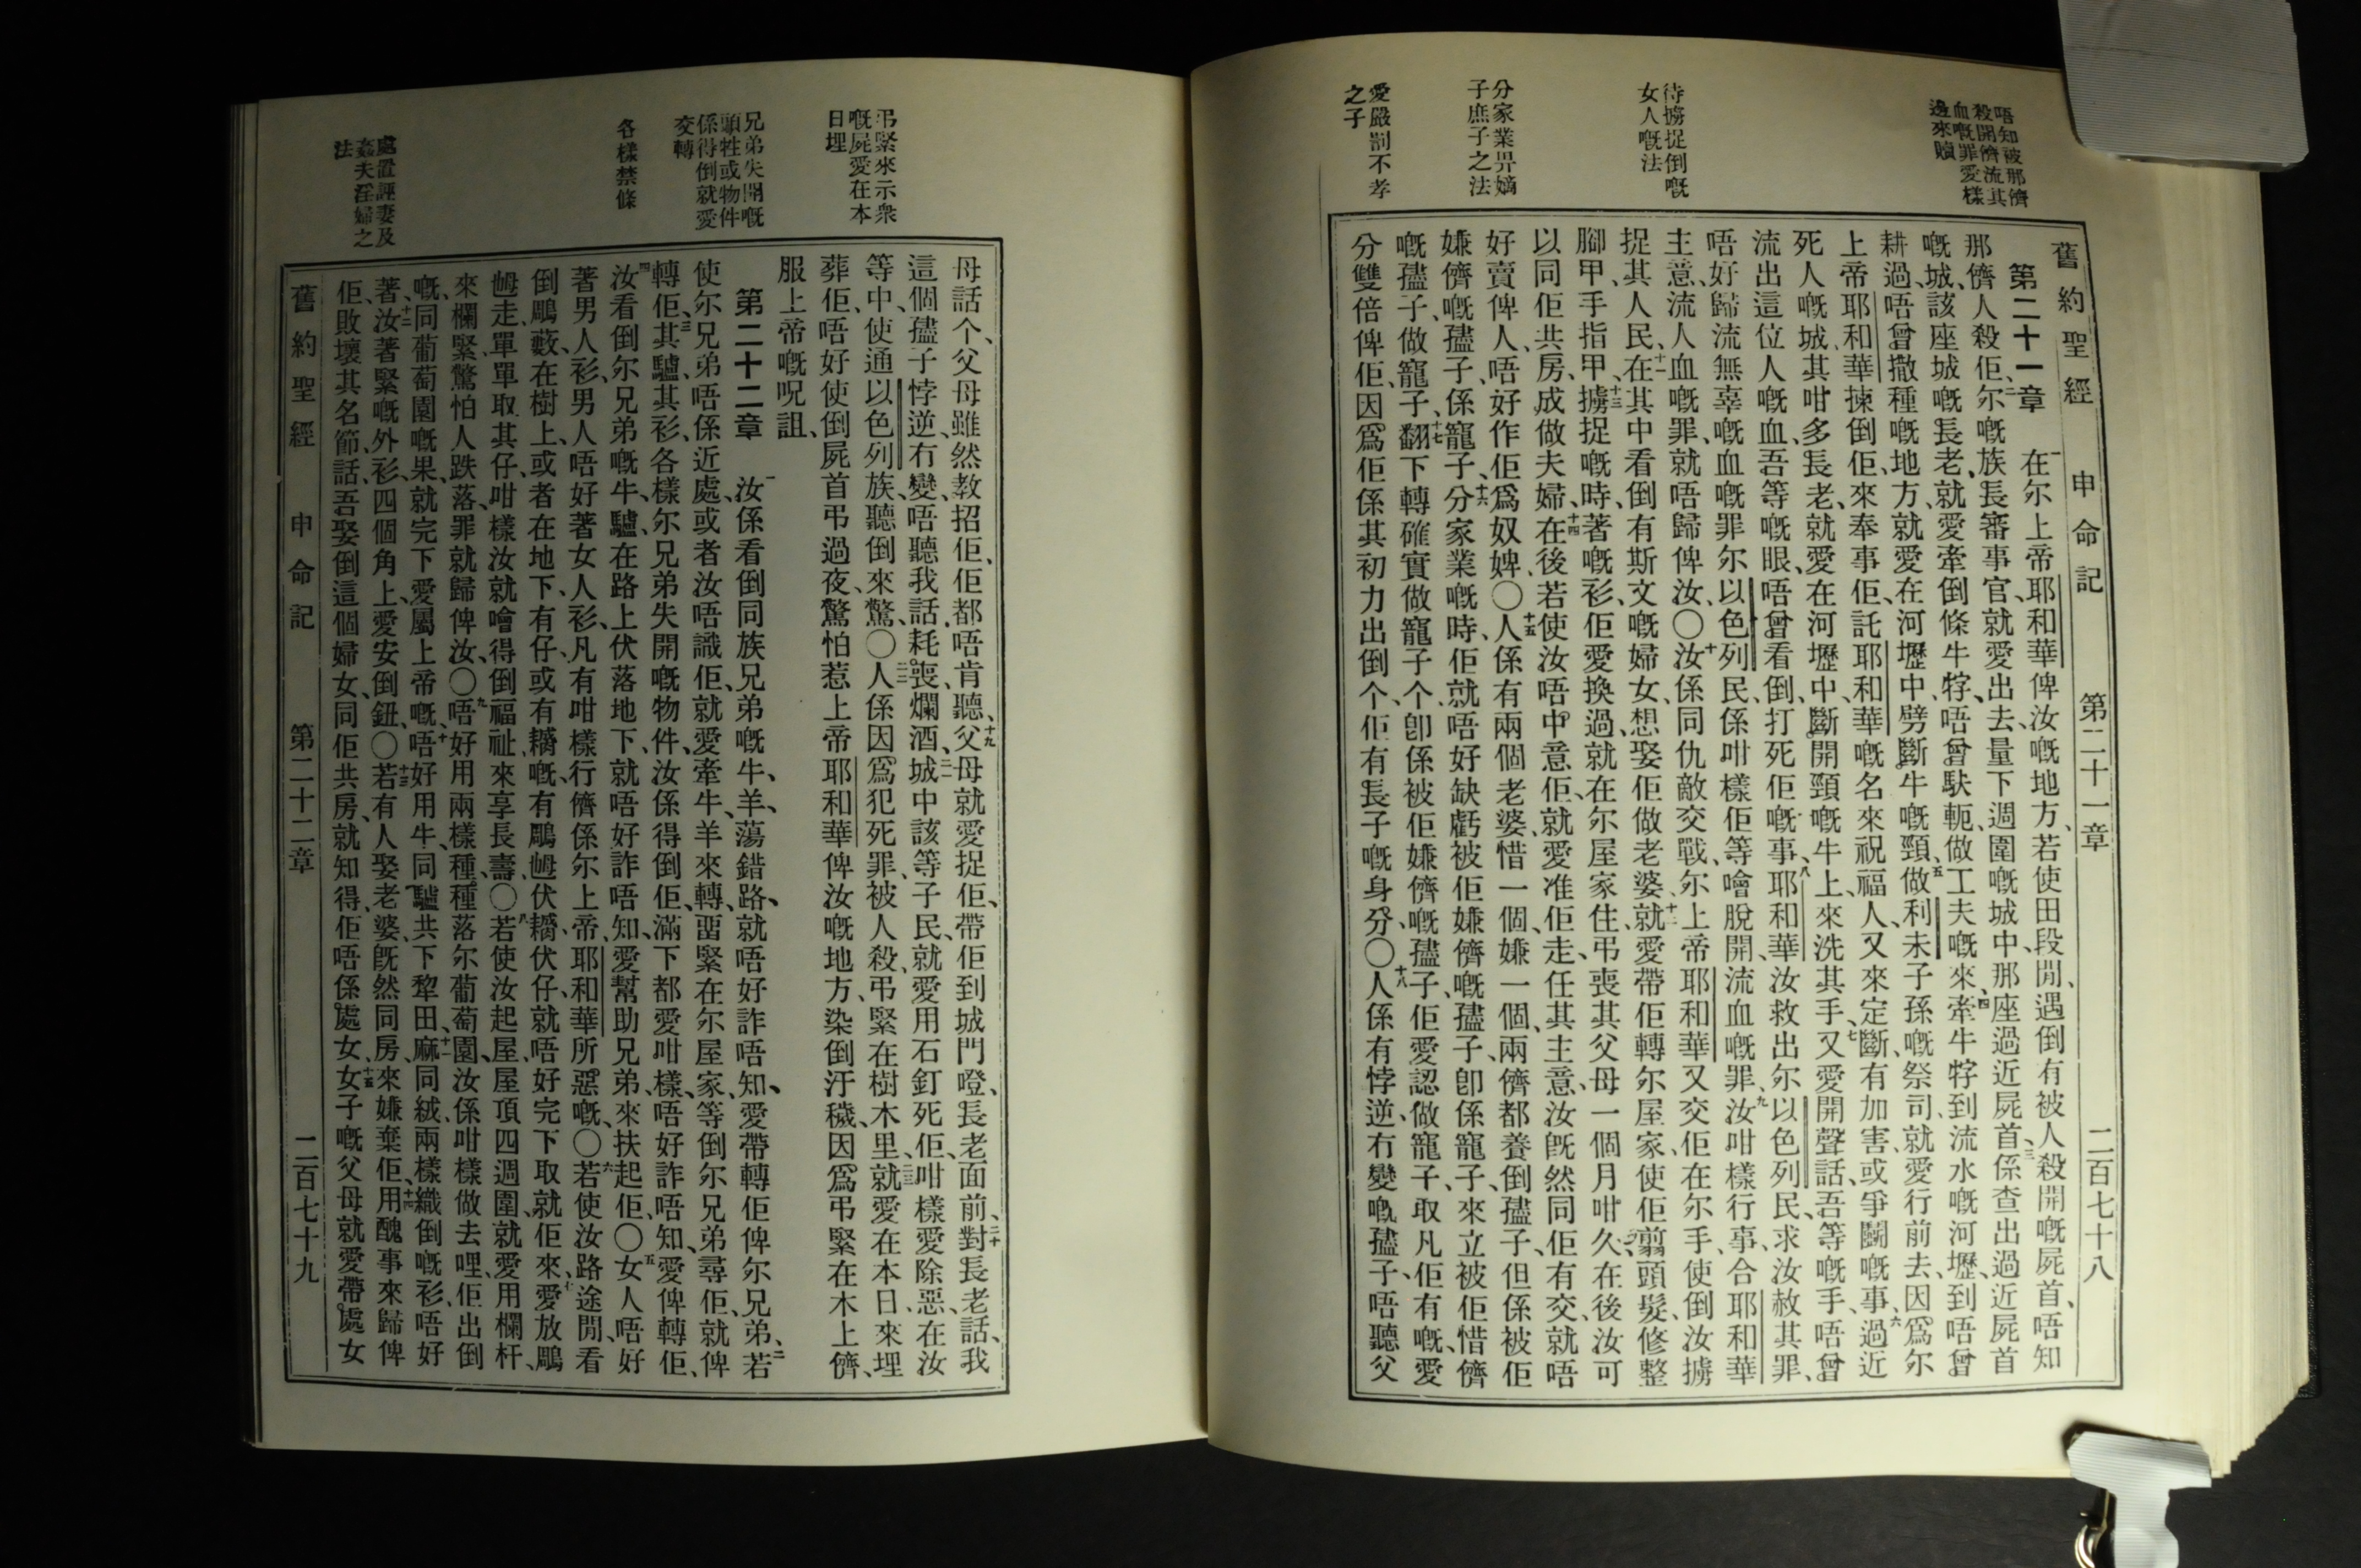 唔知被那儕
殺開儕流其
血嘅罪愛樣
邊來贖
待擄捉倒嘅
女人嘅法
分家業畀嫡
子庶子之法
愛嚴罰不孝
之子
舊約聖經 申命記 第二十一章 二百七十八
第二十一章 一在尔上帝耶和華俾汝嘅地方、若使田段閒、遇倒有被人殺開嘅屍首、唔知
那儕人殺佢、二尔嘅族長審事官、就愛出去、量下週圍嘅城中、那座過近屍首、三係查出過近屍首
嘅城、該座城嘅長老、就愛牽倒條牛牸、唔曾馱軛、做工夫嘅來、四牽牛牸到流水嘅河壢、到唔曾
耕過、唔曾撒種嘅地方、就愛在河壢中、劈斷牛嘅頸、五做利未子孫嘅祭司、就愛行前去、因爲尔
上帝耶和華揀倒佢、來奉事佢、託耶和華嘅名來祝福人、又來定斷、有加害、或爭鬭嘅事、六過近
死人嘅城、其咁多長老、就愛在河壢中、斷開頸嘅牛上、來洗其手、七又愛開聲話、吾等嘅手、唔曾
流出這位人嘅血、吾等嘅眼、唔曾看倒、打死佢嘅事、八耶和華汝救出尔以色列民、求汝赦其罪、
唔好歸流無辜嘅血嘅罪尔以色列民、係咁樣佢等噲脫開、流血嘅罪、九汝咁樣行事、合耶和華
主意、流人血嘅罪、就唔歸俾汝、〇十汝係同仇敵交戰、尔上帝耶和華又交佢在尔手、使倒汝擄
捉其人民、十一在其中看倒有斯文嘅婦女、想娶佢做老婆、十二就愛帶佢轉尔屋家、使佢翦頭髮、修整
腳甲、手指甲、十三擄捉嘅時、著嘅衫、佢愛換過、就在尔屋家住、弔喪其父母一個月咁久、在後汝可
以同佢共房、成做夫婦、十四在後若使汝唔中意佢、就愛准佢走、任其主意、汝旣然同佢有交、就唔
好賣俾人、唔好作佢爲奴婢、〇十五人係有兩個老婆、惜一個、嫌一個、兩儕都養倒孻子、但係被佢
嫌儕嘅孻子、係寵子、十六分家業嘅時、佢就唔好缺虧被佢嫌儕嘅孻子、卽係寵子、來立被佢惜儕
嘅孻子、做寵子、十七翻下轉確實做寵子个、卽係被佢嫌儕嘅孻子、佢愛認做寵子、取凡佢有嘅、愛
分雙倍俾佢、因爲佢係其初力出倒个、佢有長子嘅身分、〇十八人係有悖逆冇變嘅孻子、唔聽父
弔緊來示衆
嘅屍愛在本
日埋
兄弟失開嘅
頭牲或物件
係得倒就愛
交轉
各樣禁條
處置誣妻及
姦夫淫婦之
法
母話个、父母雖然教招佢、佢都唔肯聽、十九父母就愛捉佢、帶佢到城門磴、長老面前、二十對長老話、我
這個孻子悖逆、冇變、唔聽我話、耗喪爛酒、二一城中該等子民、就愛用石釘死佢、咁樣愛除惡、在汝
等中、使通以色列族、聽倒來驚、〇二二人係因爲犯死罪、被人殺、弔緊在樹木里、二三就愛在本日、來埋
葬佢、唔好使倒屍首弔過夜、驚怕惹上帝耶和華俾汝嘅地方、染倒汙穢、因爲弔緊在木上儕、
服上帝嘅呪詛、
第二十二章 一汝係看倒同族兄弟嘅牛、羊、蕩錯路、就唔好詐唔知、愛帶轉佢俾尔兄弟、二若
使尔兄弟唔係近處、或者汝唔識佢、就愛牽牛、羊來轉、畱緊在尔屋家、等倒尔兄弟尋佢、就俾
轉佢、三其驢、其衫、各樣尔兄弟失開嘅物件、汝係得倒佢、滿下都愛咁樣、唔好詐唔知、愛俾轉佢、
四汝看倒尔兄弟嘅牛、驢、在路上伏落地下、就唔好詐唔知、愛幫助兄弟、來扶起佢、〇五女人唔好
著男人衫、男人唔好著女人衫、凡有咁樣行儕係尔上帝耶和華所惡嘅、〇六若使汝路途閒、看
倒鵰藪、在樹上、或者在地下、有仔、或有䎖嘅、有鵰乸伏䎖、伏仔、就唔好完下取、就佢來、七愛放鵰
乸走、單單取其仔、咁樣汝就噲得倒福祉、來享長壽、〇八若使汝起屋、屋頂四週圍、就愛用欄杆、
來欄緊、驚怕人跌落、罪就歸俾汝、〇九唔好用兩樣種、種落尔葡萄園、汝係咁樣做去哩、佢出倒
嘅、同葡萄園嘅果、就完下愛屬上帝嘅、十唔好用牛、同驢共下犂田、十一麻同絨、兩樣織倒嘅衫、唔好
著、十二汝著緊嘅外衫、四個角上、愛安倒鈕、〇十三若有人娶老婆、旣然同房、來嫌棄佢、十四用醜事來歸俾
佢、敗壞其名節、話、吾娶倒這個婦女、同佢共房、就知得佢唔係處女、十五女子嘅父母就愛帶處女
舊約聖經 申命記 第二十二章 二百七十九